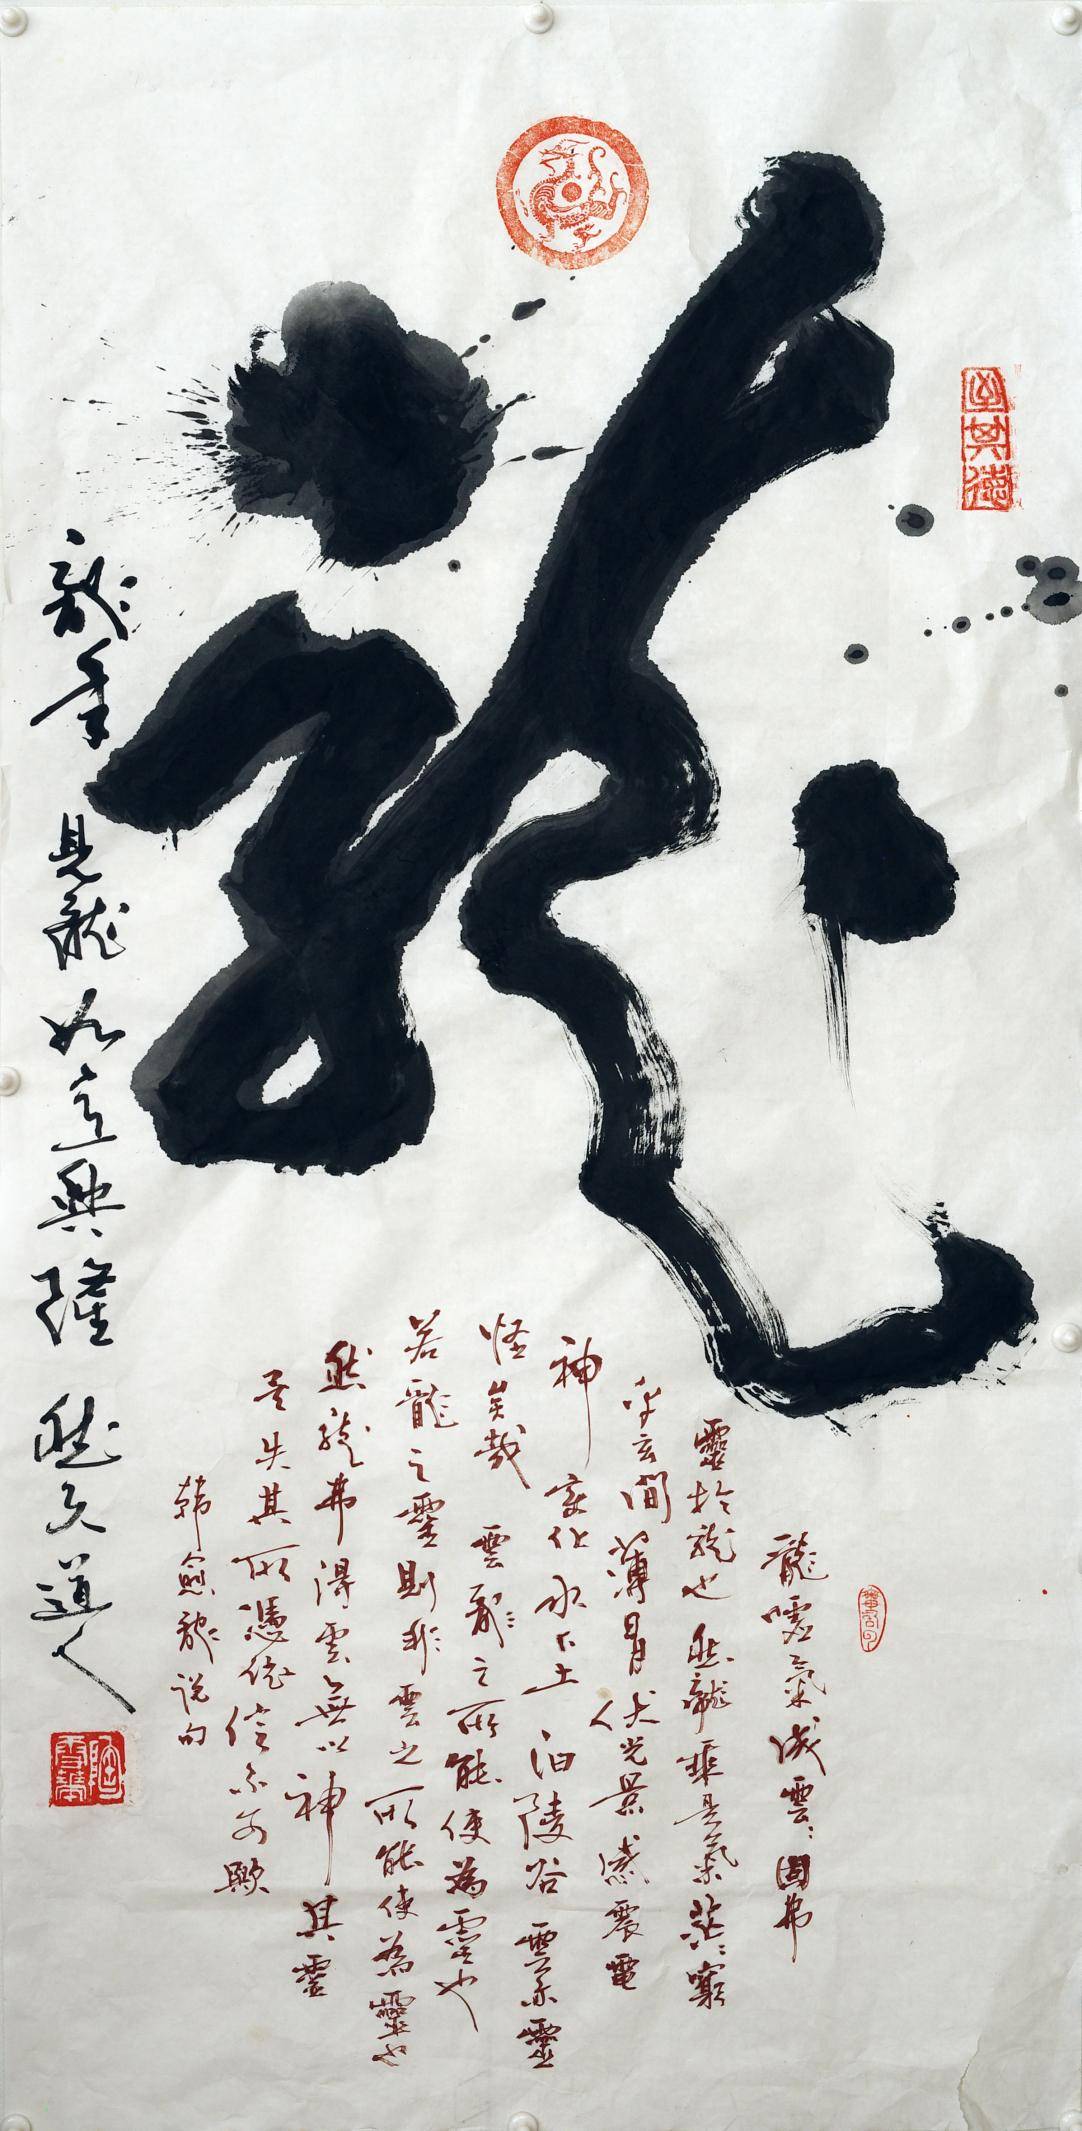 龍
龍噓氣成雲〻固弗
靈於龍也然龍乘是氣茫〻窮
乎玄間薄日月伏光景感震電
神變化水下土汩陵谷雲亦靈
怪矣哉雲龍〻之所能使為靈也
若龍之靈則非雲之所能使為靈也
然龍弗得雲無以神其靈
矣失其所憑依信不可歟
韓愈龍〻說句
龍〻年見龍如意興隆 然文道人